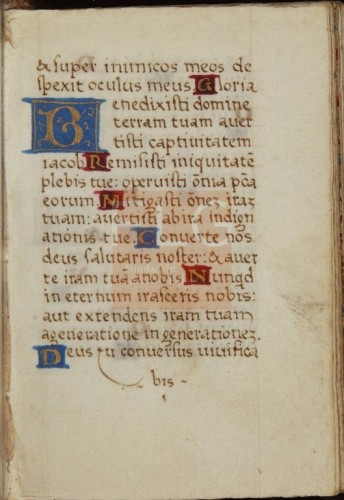 & super inimicos meos de
spexit oculus meus. Gloria
Benedixisti domine
terram tuam aver
tisti captivitatem
iacob. Remisisti iniquitatē
plebis tue: operuisti om̄ia pc̄a
eorum. Mitigasti om̄ez iraz
tuam: avertisti ab ira indign
ationis tue. Converte nos
deus salutaris noster: & aver
te iram tuā a nobis. Nunqd
in eternum irasceris nobis:
aut extendens iram tuam
a generatione in generationez.
Deus tu conversus vivifica
bis